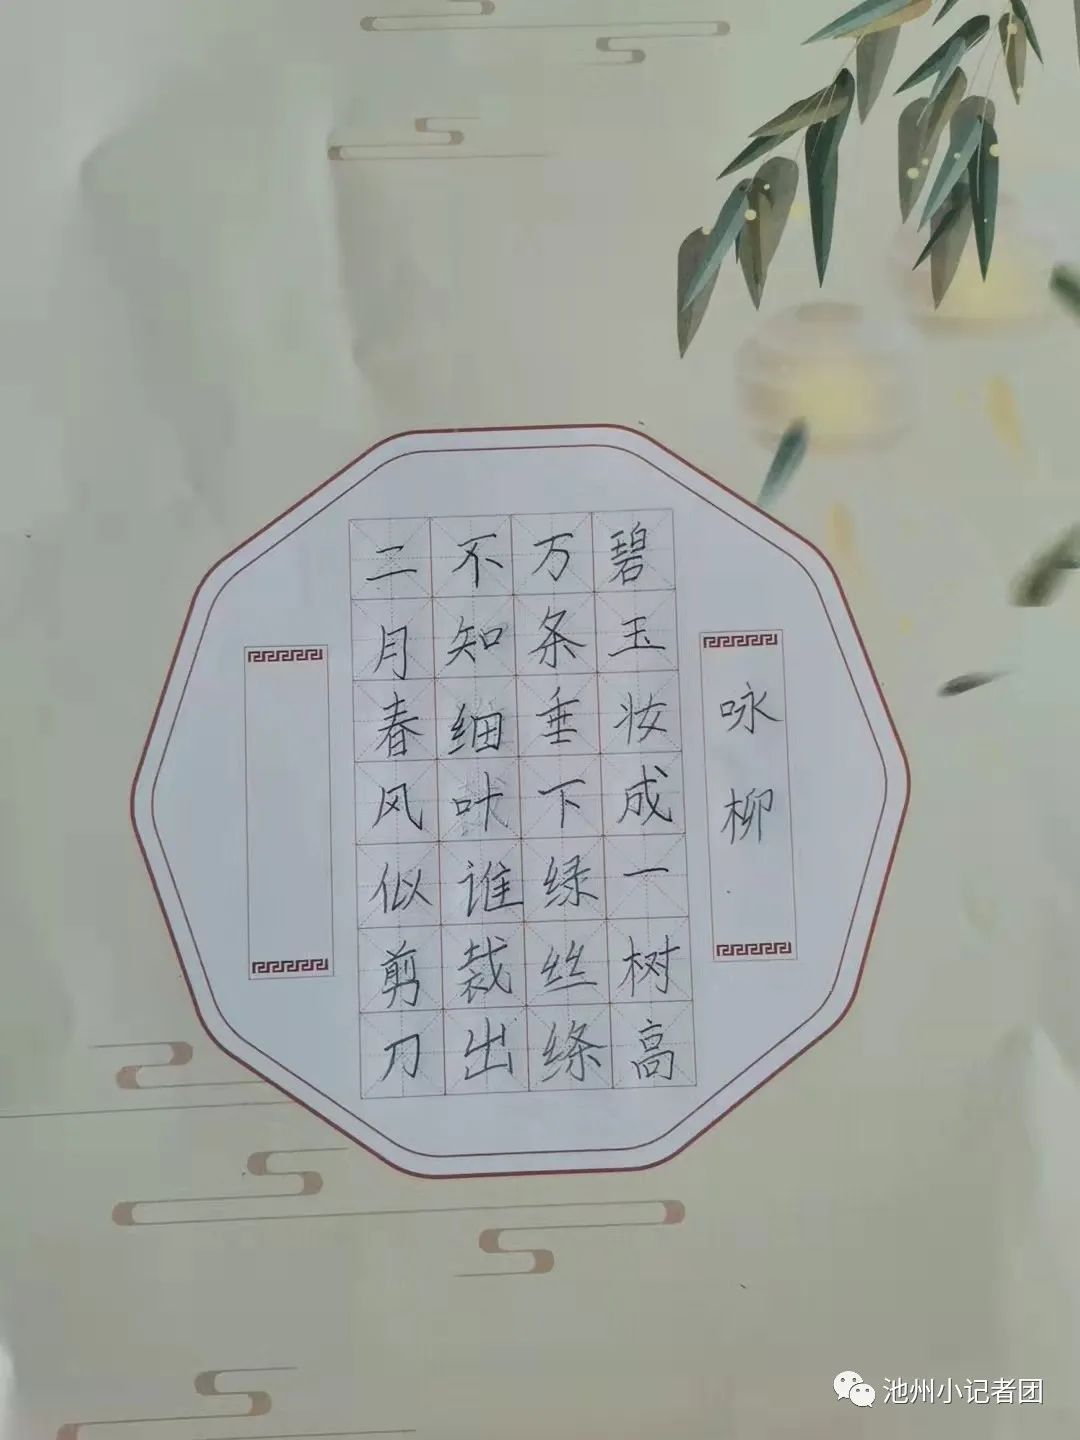 咏柳
碧玉妆成一树高
万条垂下绿丝绦
不知细叶谁裁出
二月春风似剪刀
池州小记者团